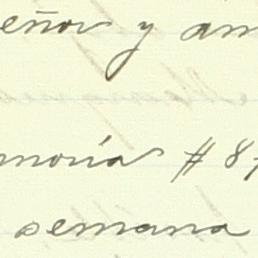 eñor y am
moría # 87
semana